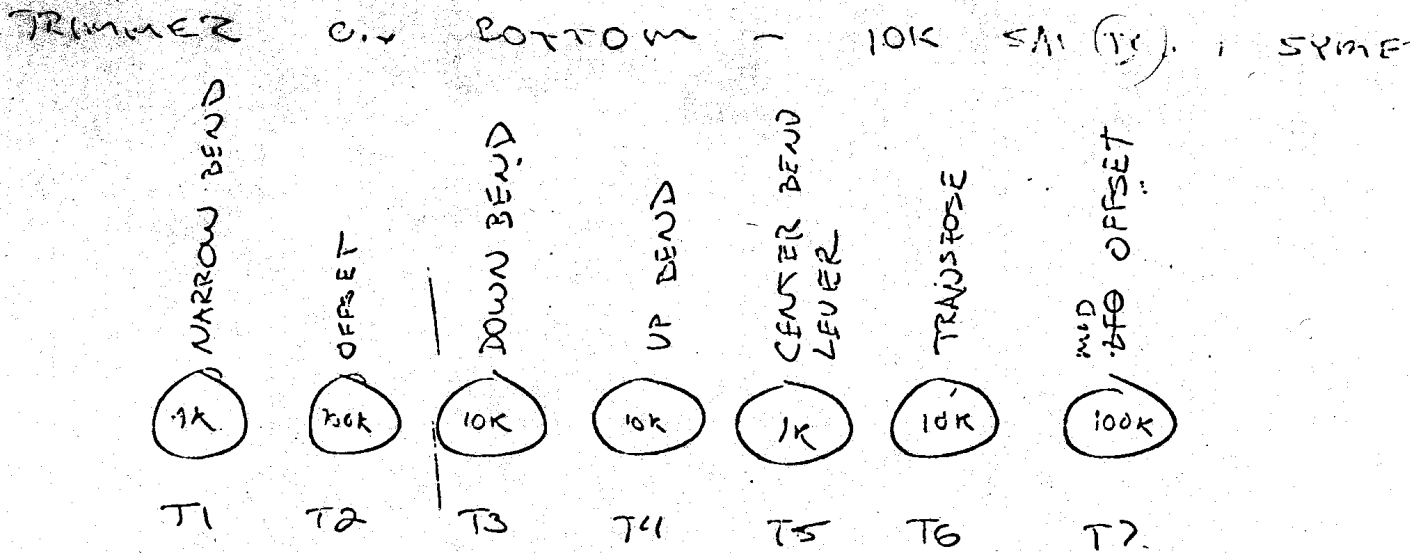 TRIMMER ON BOTTOM - 10K
NARROW BEND
OFFSET
DOWN BEND
UP BEND
CENTER BEND
LEVER
TRANSPOSE
MOD LFO OFFSET
10K 10K 1K 10K 100K
T1 T2 T3 T4 T5 T6 T7.